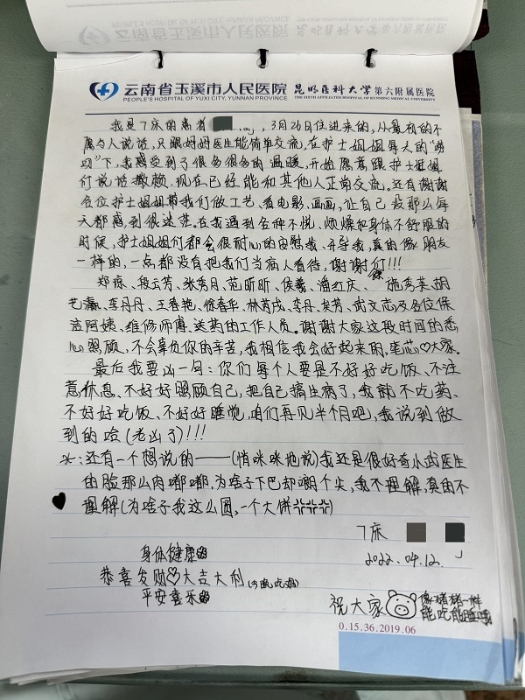 云南省玉溪市人民医院 昆明医科大学第六附属医院
PEOPLE'S HOSPITAL OF YUXI CITY, YUNNAN PROVINCE THE SIXTH AFFILIATED HOSPITAL OF KUNMING MEDICAL UNIVERSITY
我是7床的患者 3月26日住进来的,从最初的不
愿与人说话,只跟妈妈医生能简单交流,在护士姐姐每天的
下,我感受到了很多很多的温暖,开始愿意跟护士姐
们说话撒娇,现在已经能和其他人正常交流。还有谢谢
各位护士姐姐带我们做工艺、看电影、画画,让自己没那么每
天都感到很迷茫。在我遇到各种不悦、烦燥和身体不舒服的
时候,护士姐姐们都会很耐心的安慰我、开导我,真的像朋友
一样的,一点都没有把我们当病人看待,谢谢你们!!!
郑燥、段云芳、张秀月、范昕昕、侯蓉、潘红庆、施秀英、胡
艺瀛、李丹丹、王春艳、徐春华、林芮戊、李丹、吴芳、武文志及各位保
洁阿姨、维修师傅、送药的工作人员。谢谢大家这段时间的悉
心照顾,不会辜负你的辛苦,我相信我会好起来的。笔芯♡大家。
最后我要凶一句:你们每个人要是不好好吃饭、不注
意休息、不好好照顾自己,把自己搞生病了,我就不吃药、
不好好吃饭、不好好睡觉,咱们再见半个月吧,我说到做
到的哈(老凶了)!!!
※:还有一个想说的——(悄咪咪地说)我还是很好奇小武医生
的脸那么肉嘟嘟,为啥子下巴却嘲个尖,我不理解,真的不
理解(为啥子我这么圆,一个大饼
7床
2022.04.12.
身体健康
恭喜发财♡大吉大利
平安喜乐
祝大家 像猪猪一样
能吃能睡哦
0.15.36.2019.06